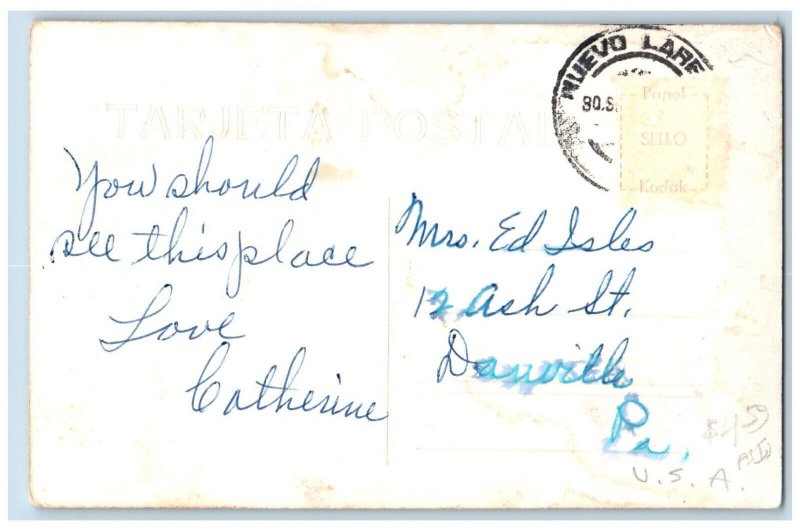 NUEVO LARE
30.S.
TARJETA POSTAL
Papel
SELLO
Kodak
You should
see this place
Love
Catherine
Mrs. Ed Isles
12 Ash St.
Danville
Pa.
U.S.A.